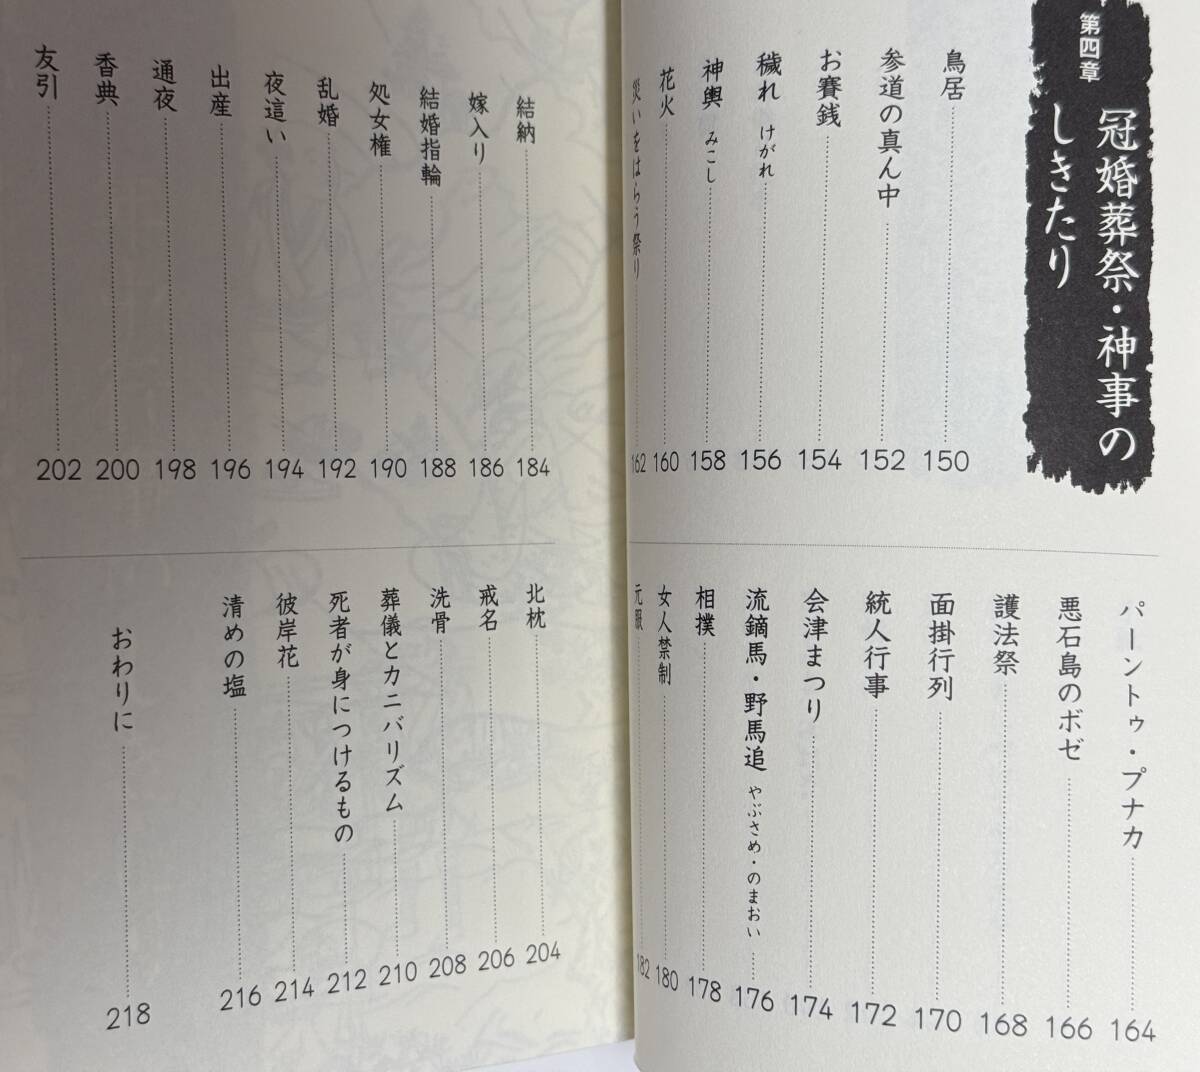 第四章
冠婚葬祭・神事の
しきたり
鳥居 150
参道の真ん中 152
お賽銭 154
穢れ けがれ 156
神輿 みこし 158
花火 160
災いをはらう祭り 162
パーントゥ・プナカ 164
悪石島のボゼ 166
護法祭 168
面掛行列 170
統人行事 172
会津まつり 174
流鏑馬・野馬追 やぶさめ・のまおい 176
相撲 178
女人禁制 180
元服 182
結納 184
嫁入り 186
結婚指輪 188
処女権 190
乱婚 192
夜這い 194
出産 196
通夜 198
香典 200
友引 202
北枕 204
戒名 206
洗骨 208
葬儀とカニバリズム 210
死者が身につけるもの 212
彼岸花 214
清めの塩 216
おわりに 218